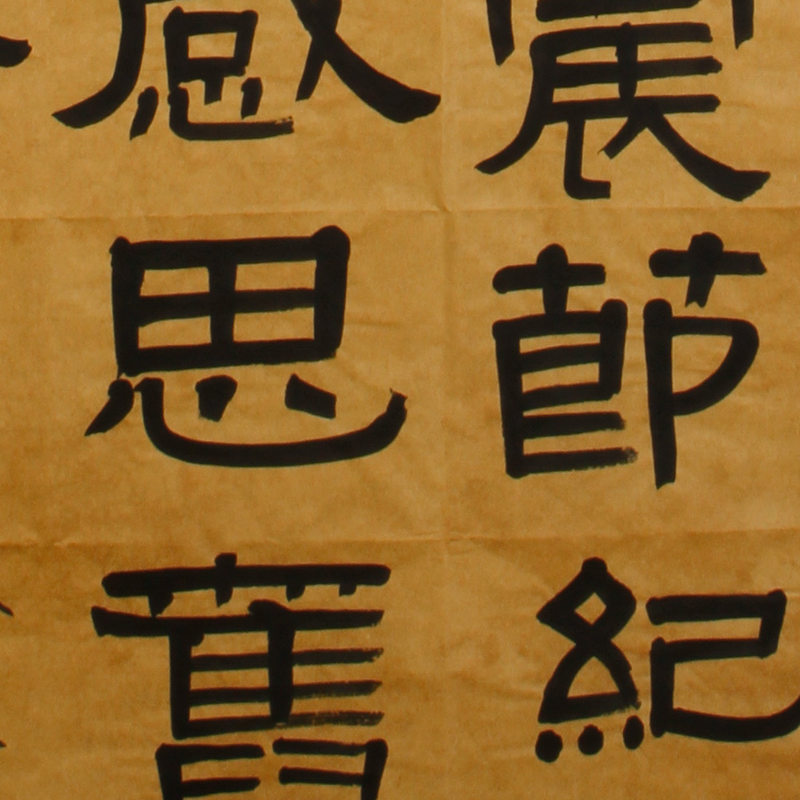 震節紀
感思舊